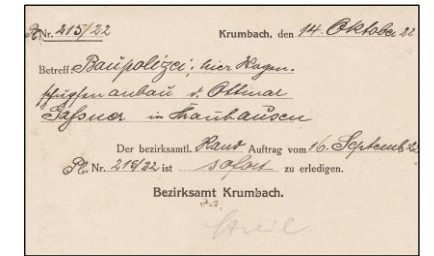 Nr. 215/22 Krumbach, den 14. Oktober 22
Betreff Baupolizei; hier Wagen-
anbau d. Ottmar
Gaßner in
Der bezirksamtl. Rand Auftrag vom 16. Septemb 22
Nr. 215/22 ist sofort zu erledigen.
Bezirksamt Krumbach.